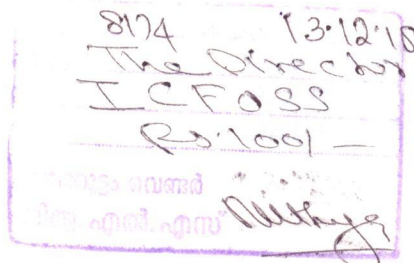 8174 13.12.18
The Director
ICFOSS
Rs.100/-
വെണ്ടർ
എൽ. എസ്